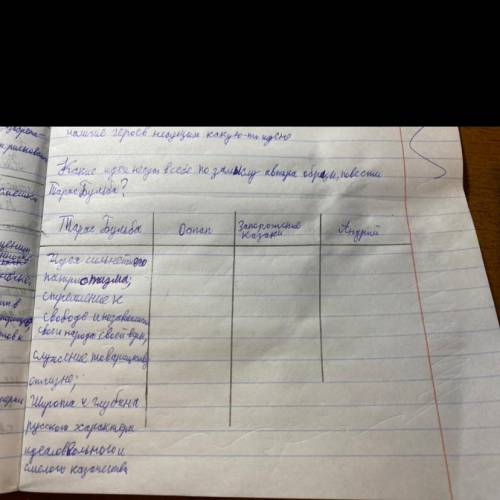 наличие героев несущих какую-то идею
Какие идеи несут в себе по замыслу автора образы, повести
Тарас Бульба?
Тарас Бульба Остап Запорожские казаки Андрий
Идея сильнейшего
патриотизма;
стремление к
свободе и независимости
своего народа своей веры,
служение товариществу,
отчизне;
Широта и глубина
русского характера
идеалов вольного и
смелого казачества